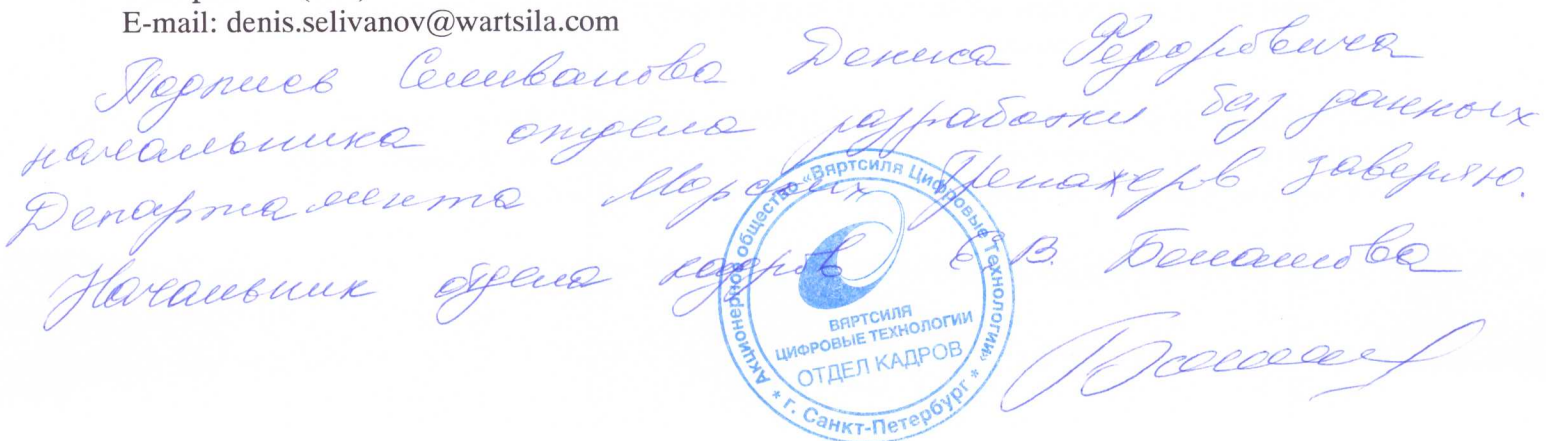 E-mail: denis.selivanov@wartsila.com
Подпись Селиванова Дениса Федоровича
начальника отдела разработки баз данных
Департамента Морских Тренажеров заверяю.
Начальник отдела кадров Е.В.
Акционерное общество «Вяртсиля Цифровые Технологии»
ВЯРТСИЛЯ
ЦИФРОВЫЕ ТЕХНОЛОГИИ
ОТДЕЛ КАДРОВ
* г. Санкт-Петербург *